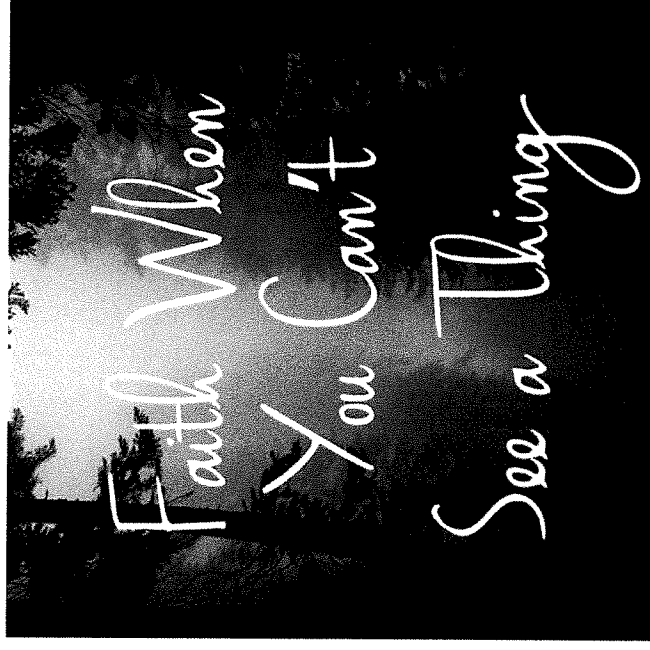 Faith When
You Can't
See a Thing